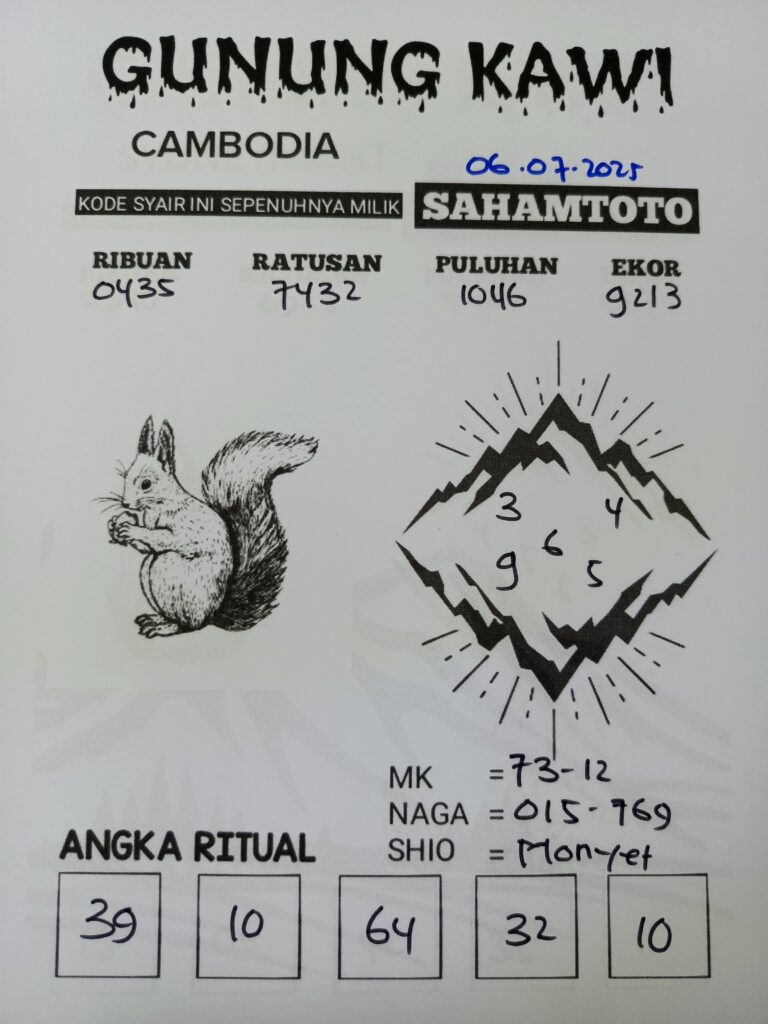 GUNUNG KAWI
CAMBODIA
06.07.2025
KODE SYAIR INI SEPENUHNYA MILIK SAHAMTOTO
RIBUAN RATUSAN PULUHAN EKOR
0435 7432 1046 9213
3 4
6
9 5
MK = 73-12
NAGA = 015-769
SHIO = Monyet
ANGKA RITUAL
39 10 64 32 10